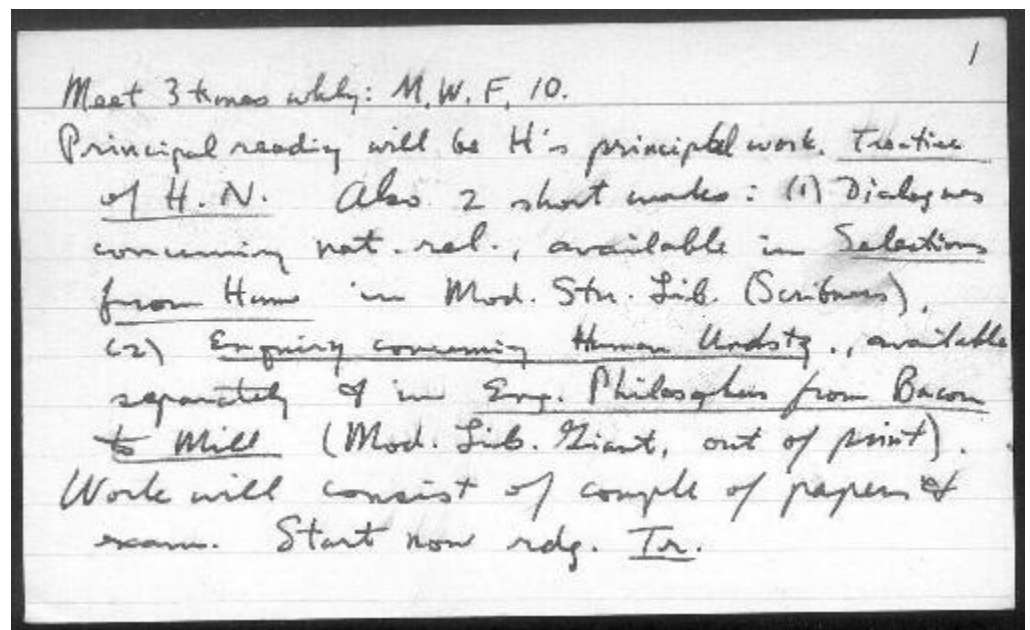 1
Meet 3 times wkly: M. W. F. 10.
Principal reading will be H's principal work. Treatise
of H. N. Also 2 short works: (1) Dialogues
concerning nat. rel., available in Selections
from Hume in Mod. Stu. Lib. (Scribners).
(2) Enquiry concerning Human Undstg., available
separately & in Eng. Philosophers from Bacon
to Mill (Mod. Lib. Giant, out of print).
Work will consist of couple of papers &
exam. Start now rdg. Tr.